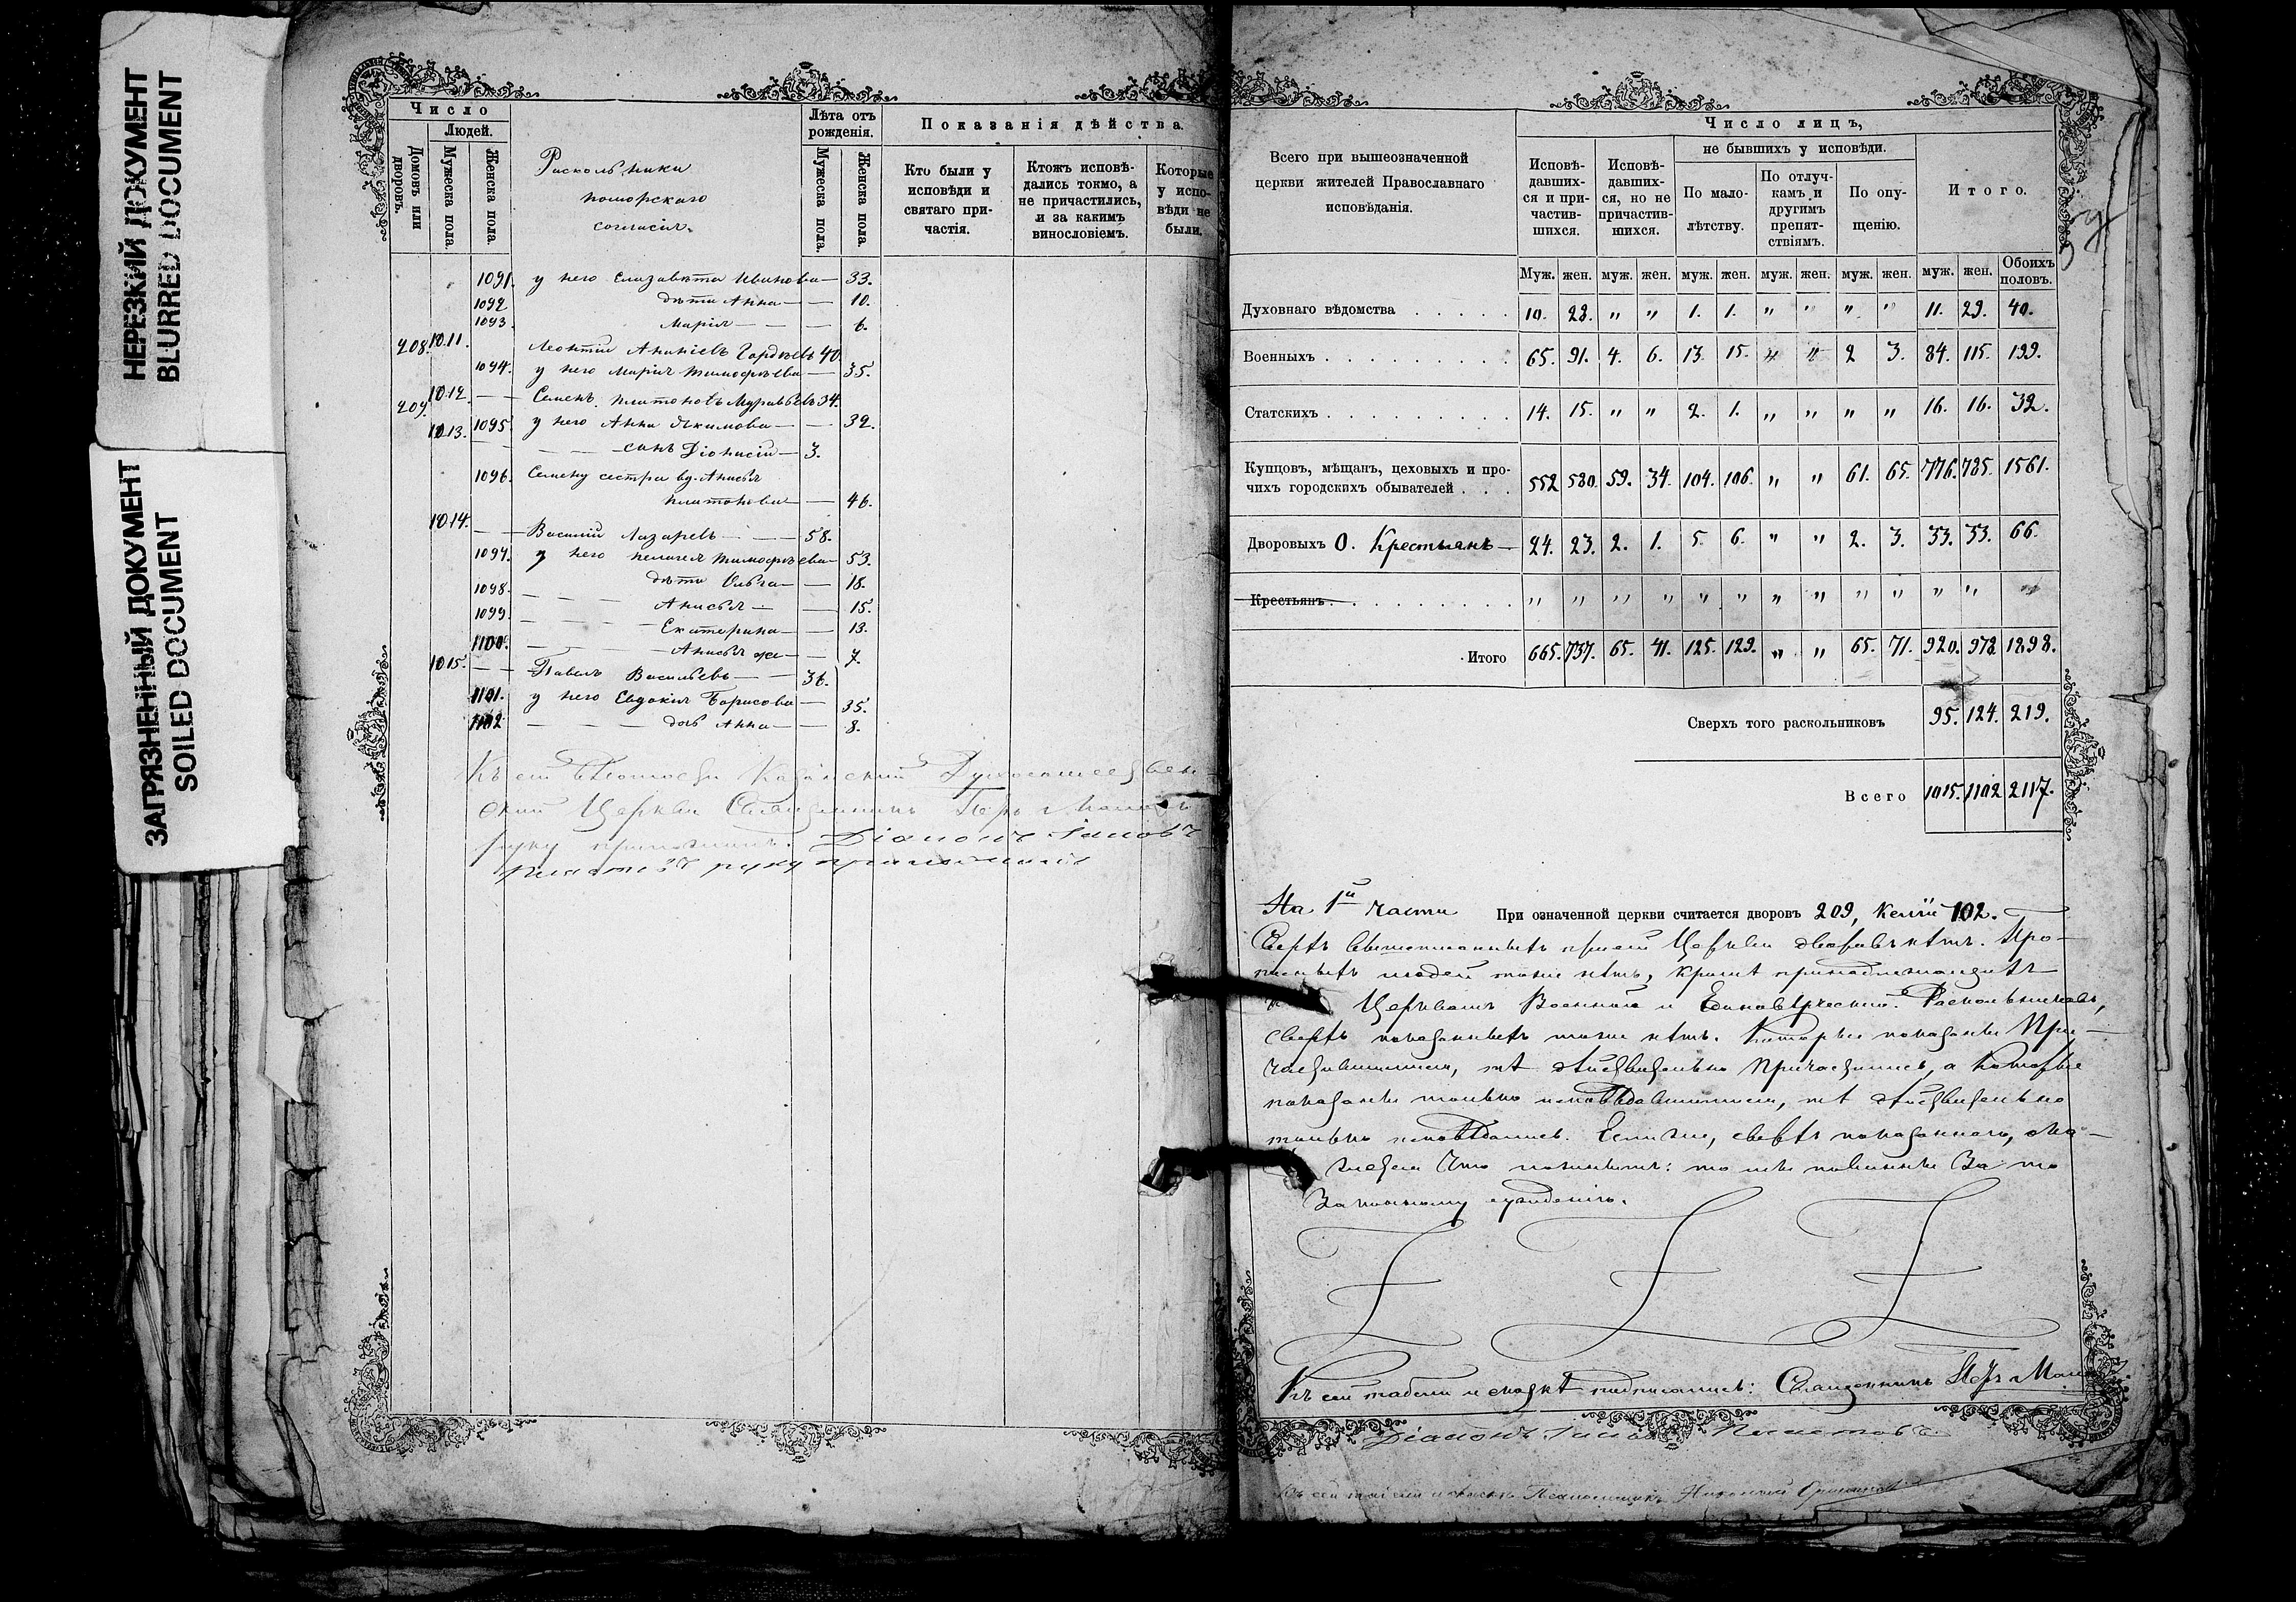 НЕРЕЗКИЙ ДОКУМЕНТ
BLURRED DOCUMENT
ЗАГРЯЗНЕННЫЙ ДОКУМЕНТ
SOILED DOCUMENT
Число
Людей.
Домовъ или дворовъ.
Мужеска пола.
Женска пола.
Раскольники
поморскаго
согласія.
Лѣта отъ рожденія.
Мужеска пола.
Женска пола.
Показанія дѣйства.
Кто были у исповѣди и святаго причастія.
Ктожъ исповѣдались токмо, а не причастились, и за какимъ винословіемъ.
Которые у исповѣди не были.
1091. у него Елизавета Иванова 33.
1092 дѣти Анна 10.
1093. Марія 6.
208. 1011. Леонтій Ананіевъ Гордѣевъ 40
1094. у него Марія Тимофѣева 35.
209. 1012. Семенъ Платоновъ Муравьевъ 34.
1095 у него Анна Якимова 32.
1013. сынъ Діонисій 3.
1096. Семену сестра вд. Анисья
Платонова 46.
1014. Василій Лазаревъ 58.
1097. у него Пелагея Тимофѣева 53.
1098. дѣти Ольга 18.
1099. Анисья 15.
Екатерина 13.
1100. Анисья же 7.
1015. Павелъ Васильевъ 36.
1101. у него Евдокія Борисова 35.
1102 дочь Анна 8.
Къ сей вѣдомости Казанской
ской Церкви Священникъ
руку приложилъ. Діаконъ
руку приложилъ
Всего при вышеозначенной церкви жителей Православнаго исповѣданія.
Число лицъ,
Исповѣдавшихся и причастившихся.
Исповѣдавшихся, но не причастившихся.
не бывшихъ у исповѣди.
По малолѣтству.
По отлучкамъ и другимъ препятствіямъ.
По опущенію.
Итого.
Муж. жен. муж. жен. муж. жен. муж. жен. муж. жен. муж. жен. Обоихъ половъ.
Духовнаго вѣдомства . . . . . 10. 28. " " 1. 1. " " " " 11. 29. 40.
Военныхъ . . . . . . . . . 65. 91. 4. 6. 13. 15. " " 2 3. 84. 115. 199.
Статскихъ . . . . . . . . . 14. 15. " " 2. 1. " " " " 16. 16. 32.
Купцовъ, мѣщанъ, цеховыхъ и прочихъ городскихъ обывателей . . . 552 580. 59. 34. 104. 106. " " 61. 65. 776. 785. 1561.
Дворовыхъ О. Крестьянъ 24. 23. 2. 1. 5. 6. " " 2. 3. 33. 33. 66.
Крестьянъ . . . . . . . . . " " " " " " " " " " " " "
Итого 665. 737. 65. 41. 125. 129. " " 65. 71. 920. 978. 1898.
Сверхъ того раскольниковъ 95. 124. 219.
Всего 1015. 1102 2117.
На 1й части При означенной церкви считается дворовъ 209, келій 102.
Сверхъ вышеписанныхъ при сей Церкви дворовъ нѣтъ. Про-
писныхъ людей тоже нѣтъ, кромѣ принадлежащихъ
Церквамъ Военной и Единовѣрческой. Раскольниковъ,
сверхъ показанныхъ тоже нѣтъ. Которые показаны При-
частившимися, тѣ дѣйствительно Причастились, а которые
показаны только исповѣдавшимися, тѣ дѣйствительно
только исповѣдались. Если же, сверхъ показаннаго, ока-
жется что то мы повинны за то
Законному сужденію.
Къ сей табели и сказкѣ подписались: Священникъ Петръ
Діаконъ
Къ сей табели и сказкѣ Псаломщикъ